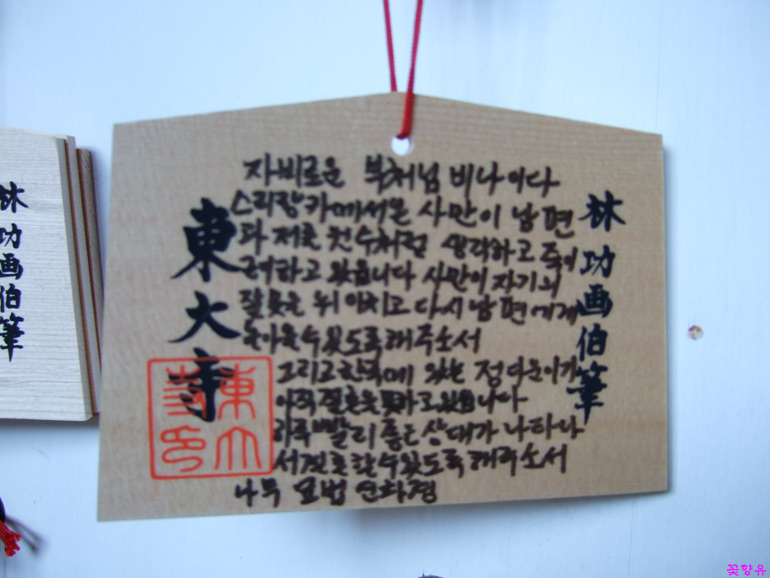 자비로운 부처님 비나이다
스리랑카에서온 사만이 남편
과 저를 원수처럼 생각하고 죽이
려하고 있습니다 사만이 자기의
잘못을 뉘우치고 다시 남편에게
돌아올수있도록해주소서
그리고한국에 있는 정다운이가
아직결혼을못하고있습니다
하루빨리 좋은 상대가 나타나
서결혼할수있도록해주소서
나무 묘법 연화경
東大寺
林功画伯筆
東大
寺印
林功画伯筆
꽃향유